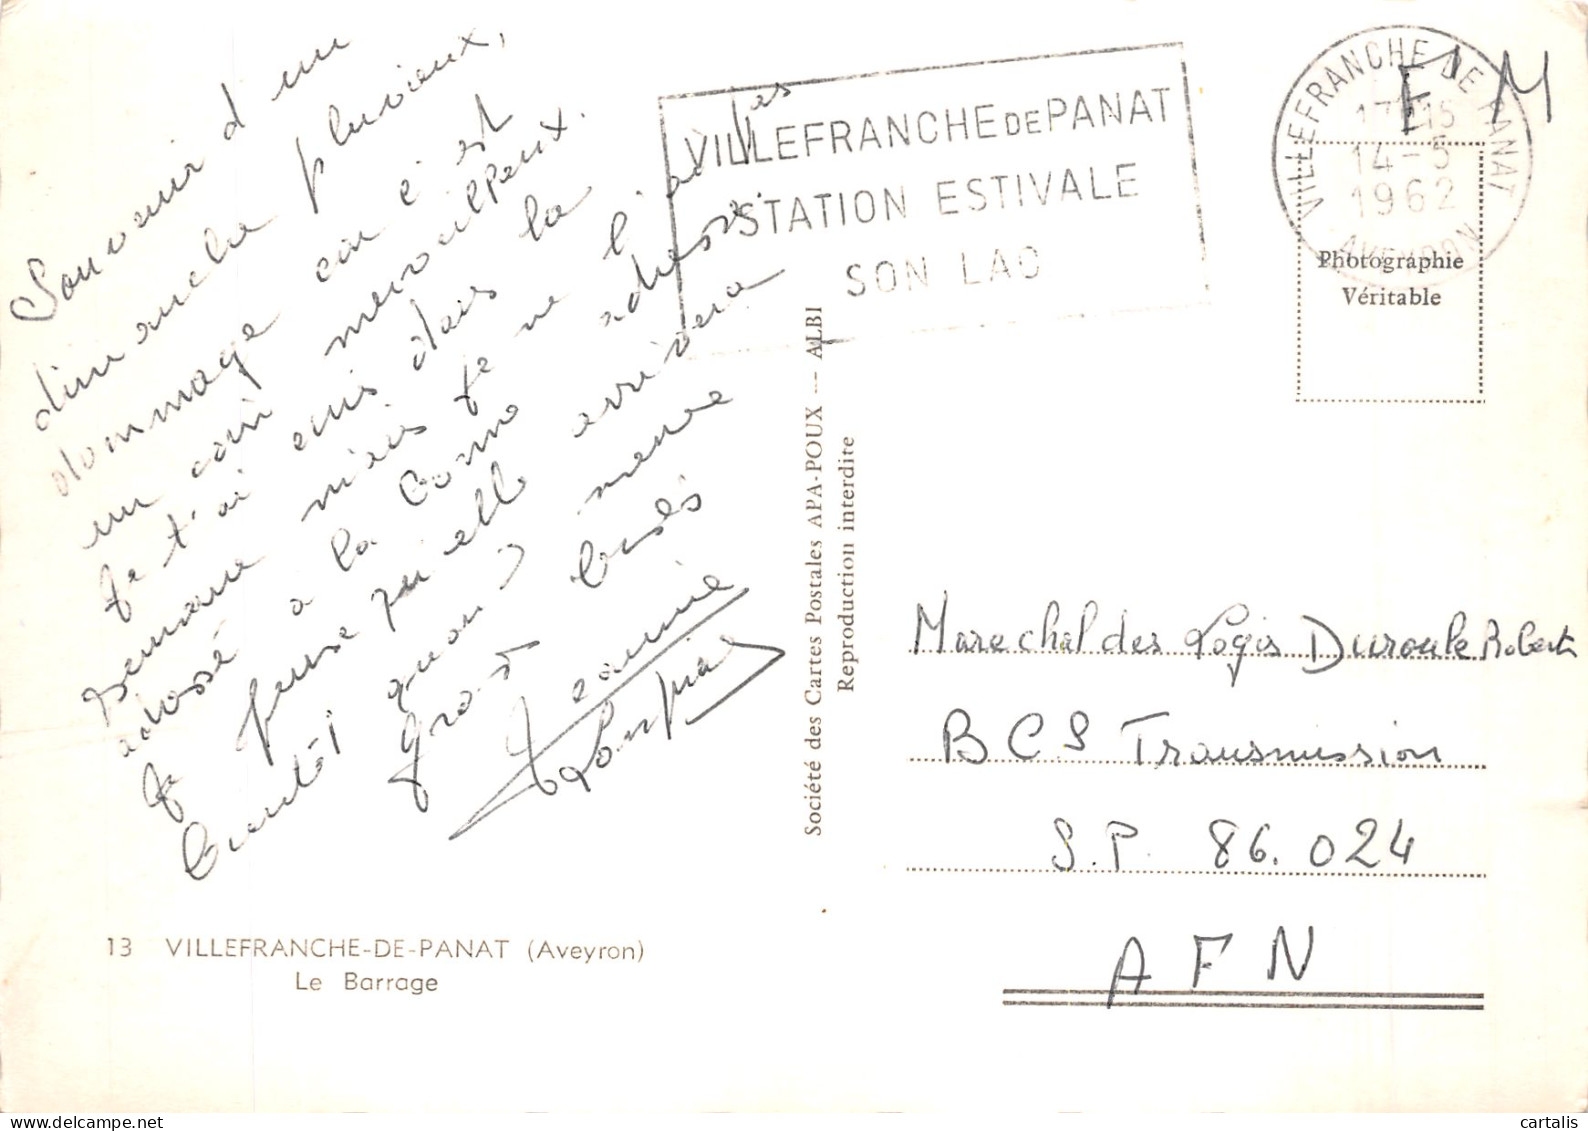 Souvenir d'un
dimanche pluvieux,
dommage car c'est
un coin merveilleux.
Je t'ai écris dans la
semaine mais je ne l'ai pas
adressé à la bonne adresse.
Je pense qu'elle arrivera
quand même
Gros baisés
Jeannie
F M
VILLEFRANCHE DE PANAT
STATION ESTIVALE
SON LAC
VILLEFRANCHE DE PANAT
14-5
1962
AVEYRON
Photographie
Véritable
Société des Cartes Postales APA-POUX --- ALBI
Reproduction interdite
Marechal des Logis Duroule Robert
BCS Transmission
S.P. 86.024
AFN
13 VILLEFRANCHE-DE-PANAT (Aveyron)
Le Barrage
cartalis